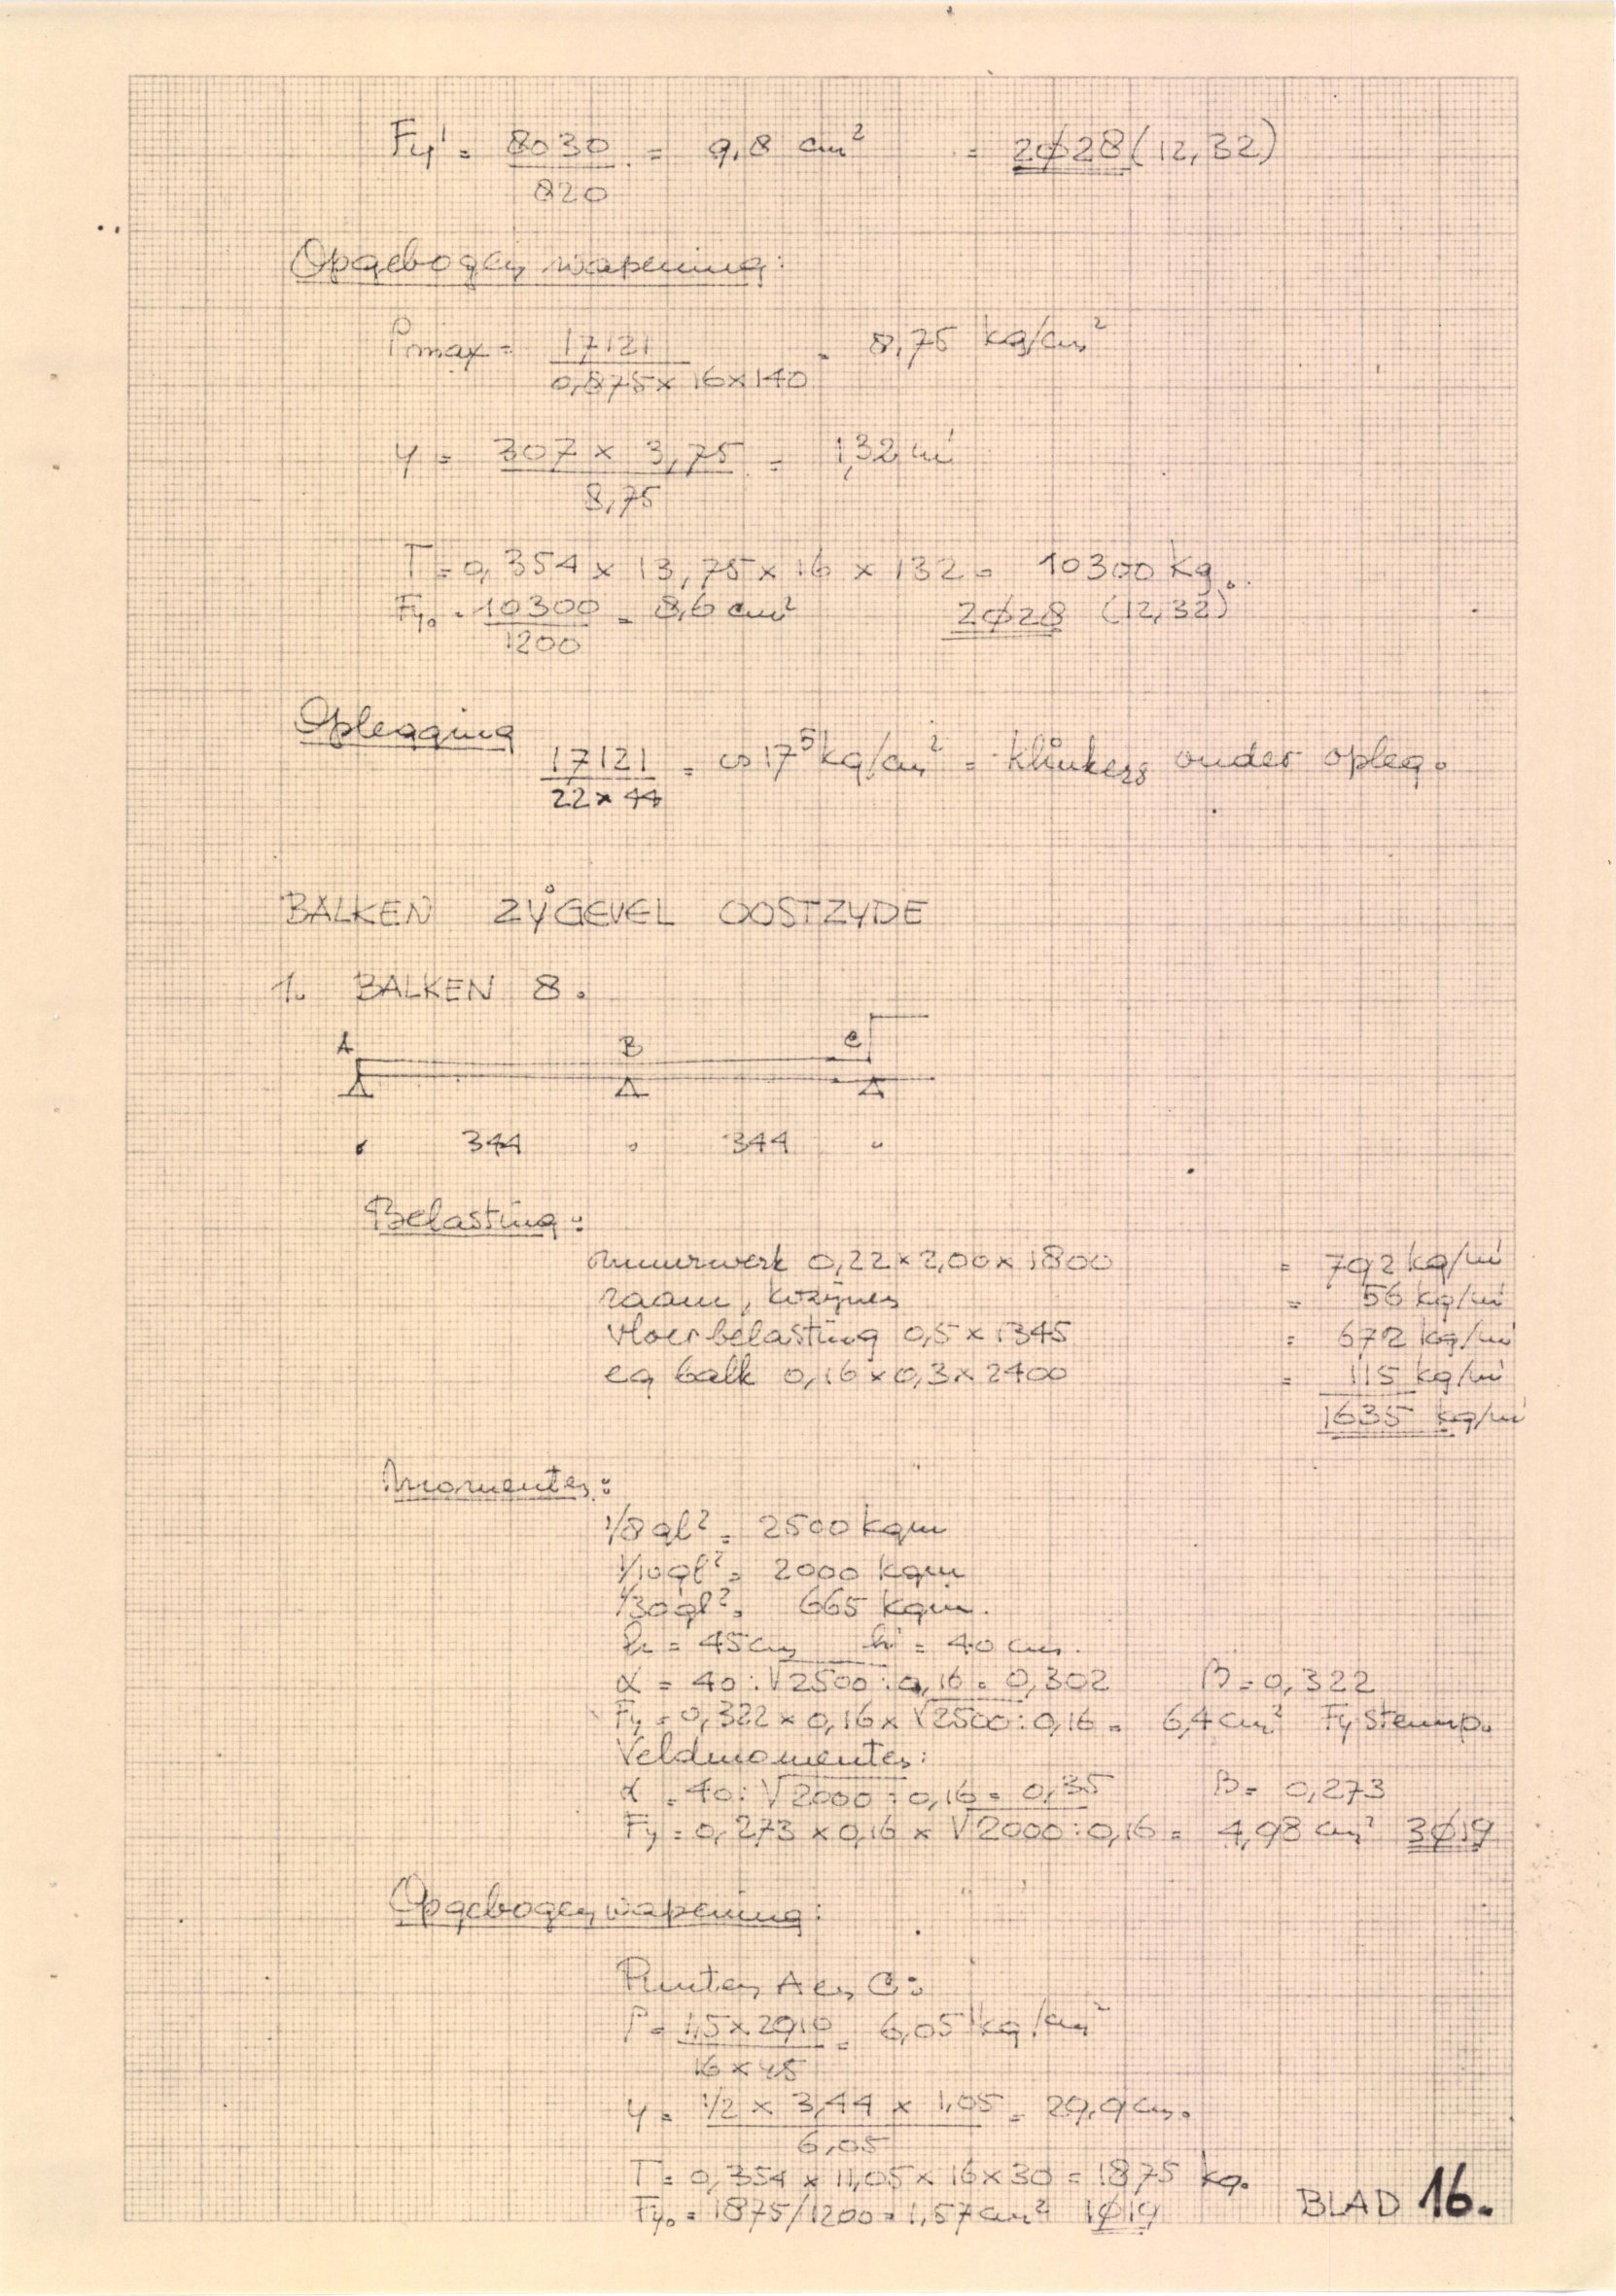 Fy' = 8030 / 820 = 9,8 cm² = 2ø28 (12,32)
Opgebogen wapening:
Pmax = 17121 / 0,875 x 16 x 140 = 8,75 kg/cm²
y = 307 x 3,75 / 8,75 = 1,32 m'
T = 0,354 x 13,75 x 16 x 132 = 10300 kg.
Fyo = 10300 / 1200 = 8,6 cm² 2ø28 (12,32)
Oplegging
17121 / 22 x 44 = ∞ 17⁵ kg/cm² = klinkers onder opleg.
BALKEN ZYGEVEL OOSTZYDE
1. BALKEN 8.
A B C
344 344
Belasting:
muurwerk 0,22 x 2,00 x 1800 = 792 kg/m'
raam, kozijnen = 56 kg/m'
vloerbelasting 0,5 x 1345 = 672 kg/m'
eg balk 0,16 x 0,3 x 2400 = 115 kg/m'
1635 kg/m'
Momenten:
1/8 ql² = 2500 kgm
1/10 ql² = 2000 kgm
1/30 ql² = 665 kgm.
h = 45 cm h' = 40 cm.
α = 40 : √2500 : 0,16 = 0,302 β = 0,322
Fy = 0,322 x 0,16 x √2500 : 0,16 = 6,4 cm² Fy stemp.
Veldmomenten:
α = 40 : √2000 : 0,16 = 0,35 β = 0,273
Fy = 0,273 x 0,16 x √2000 : 0,16 = 4,98 cm² 3ø19
Opgebogen wapening:
Punten A en C:
P = 1,5 x 2910 / 16 x 45 = 6,05 kg/cm²
y = 1/2 x 3,44 x 1,05 / 6,05 = 29,9 cm.
T = 0,354 x 11,05 x 16 x 30 = 1875 kg.
Fyo = 1875/1200 = 1,57 cm² 1ø19
BLAD 16.